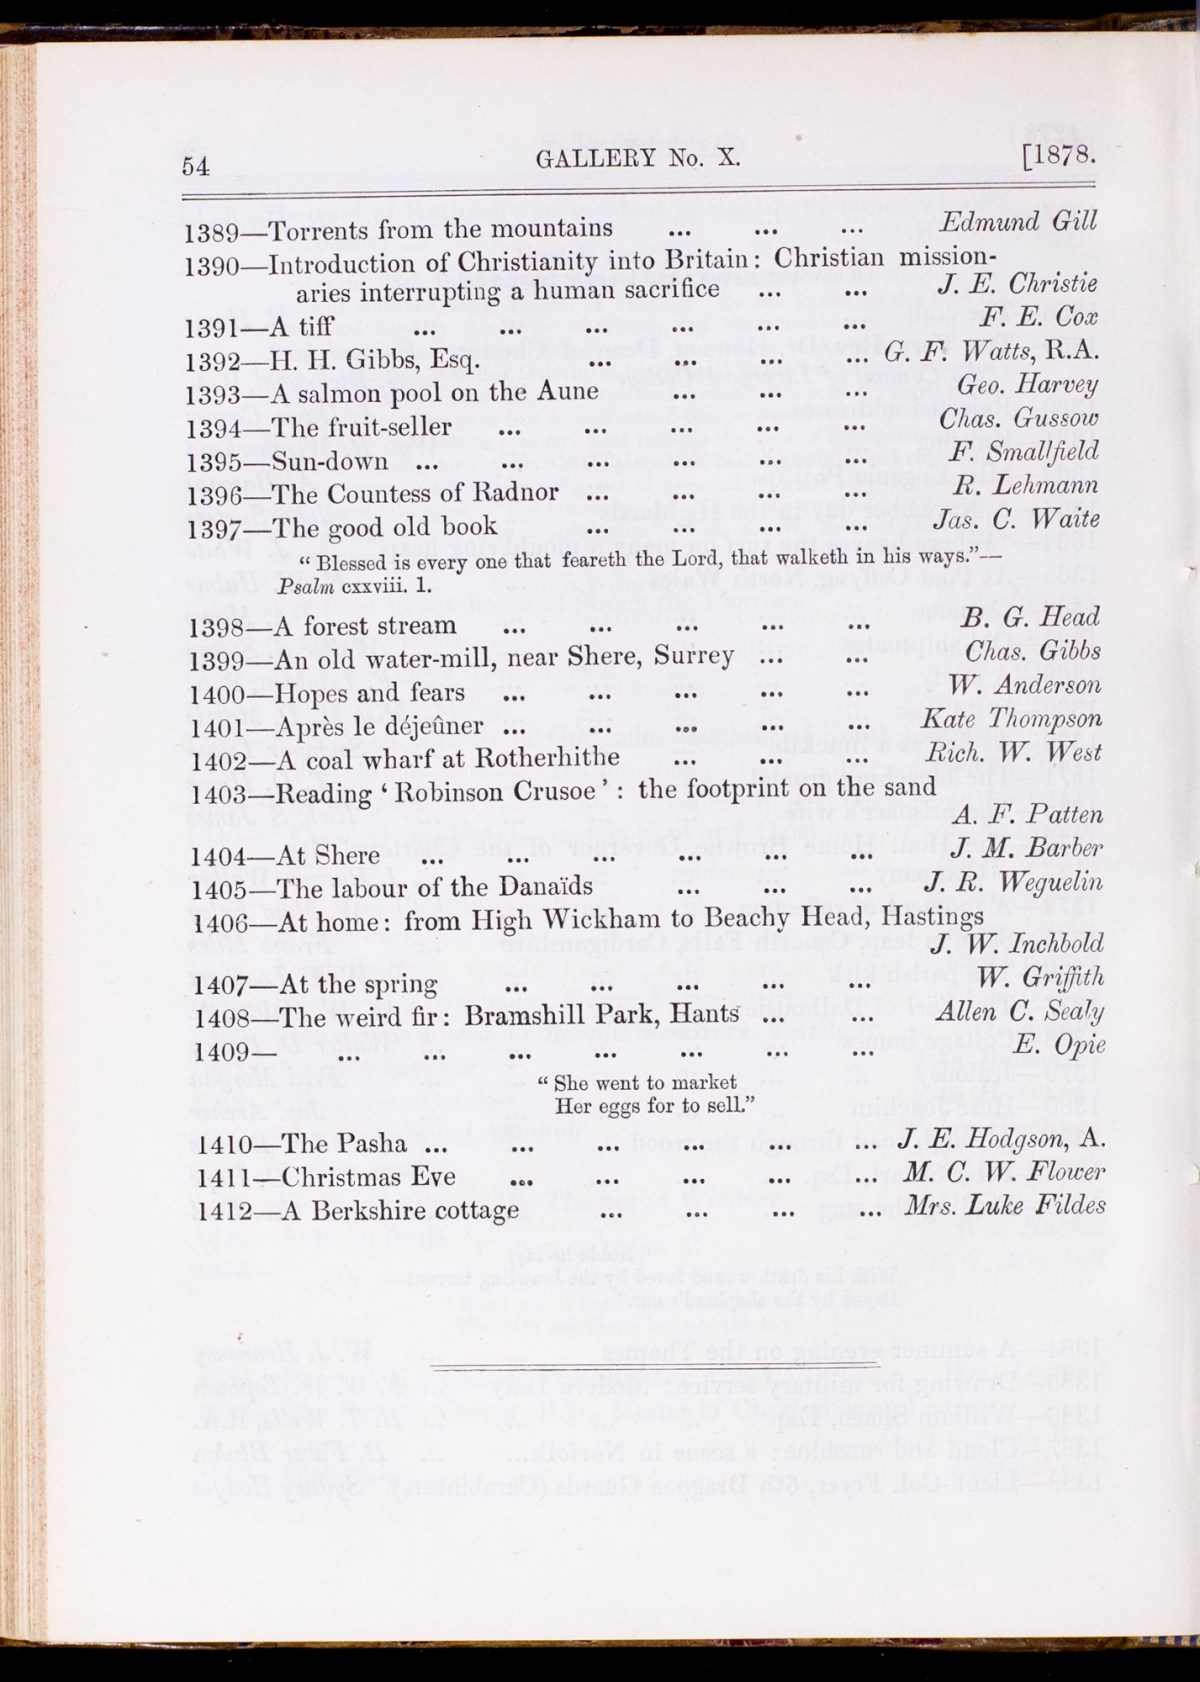 54 GALLERY No. X. [1878.
1389—Torrents from the mountains ... ... ... Edmund Gill
1390—Introduction of Christianity into Britain: Christian mission-
aries interrupting a human sacrifice ... ... J. E. Christie
1391—A tiff ... ... ... ... ... ... F. E. Cox
1392—H. H. Gibbs, Esq. ... ... ... ... G. F. Watts, R.A.
1393—A salmon pool on the Aune ... ... ... Geo. Harvey
1394—The fruit-seller ... ... ... ... ... Chas. Gussow
1395—Sun-down ... ... ... ... ... ... F. Smallfield
1396—The Countess of Radnor ... ... ... ... R. Lehmann
1397—The good old book ... ... ... ... Jas. C. Waite
“ Blessed is every one that feareth the Lord, that walketh in his ways.”—
Psalm cxxviii. 1.
1398—A forest stream ... ... ... ... ... B. G. Head
1399—An old water-mill, near Shere, Surrey ... ... Chas. Gibbs
1400—Hopes and fears ... ... ... ... ... W. Anderson
1401—Après le déjeûner ... ... ... ... ... Kate Thompson
1402—A coal wharf at Rotherhithe ... ... ... Rich. W. West
1403—Reading ‘ Robinson Crusoe ’ : the footprint on the sand
A. F. Patten
1404—At Shere ... ... ... ... ... ... J. M. Barber
1405—The labour of the Danaïds ... ... ... J. R. Weguelin
1406—At home: from High Wickham to Beachy Head, Hastings
J. W. Inchbold
1407—At the spring ... ... ... ... ... W. Griffith
1408—The weird fir: Bramshill Park, Hants ... ... Allen C. Sealy
1409— ... ... ... ... ... ... ... E. Opie
“ She went to market
Her eggs for to sell.”
1410—The Pasha ... ... ... ... ... ... J. E. Hodgson, A.
1411—Christmas Eve ... ... ... ... ... M. C. W. Flower
1412—A Berkshire cottage ... ... ... ... Mrs. Luke Fildes